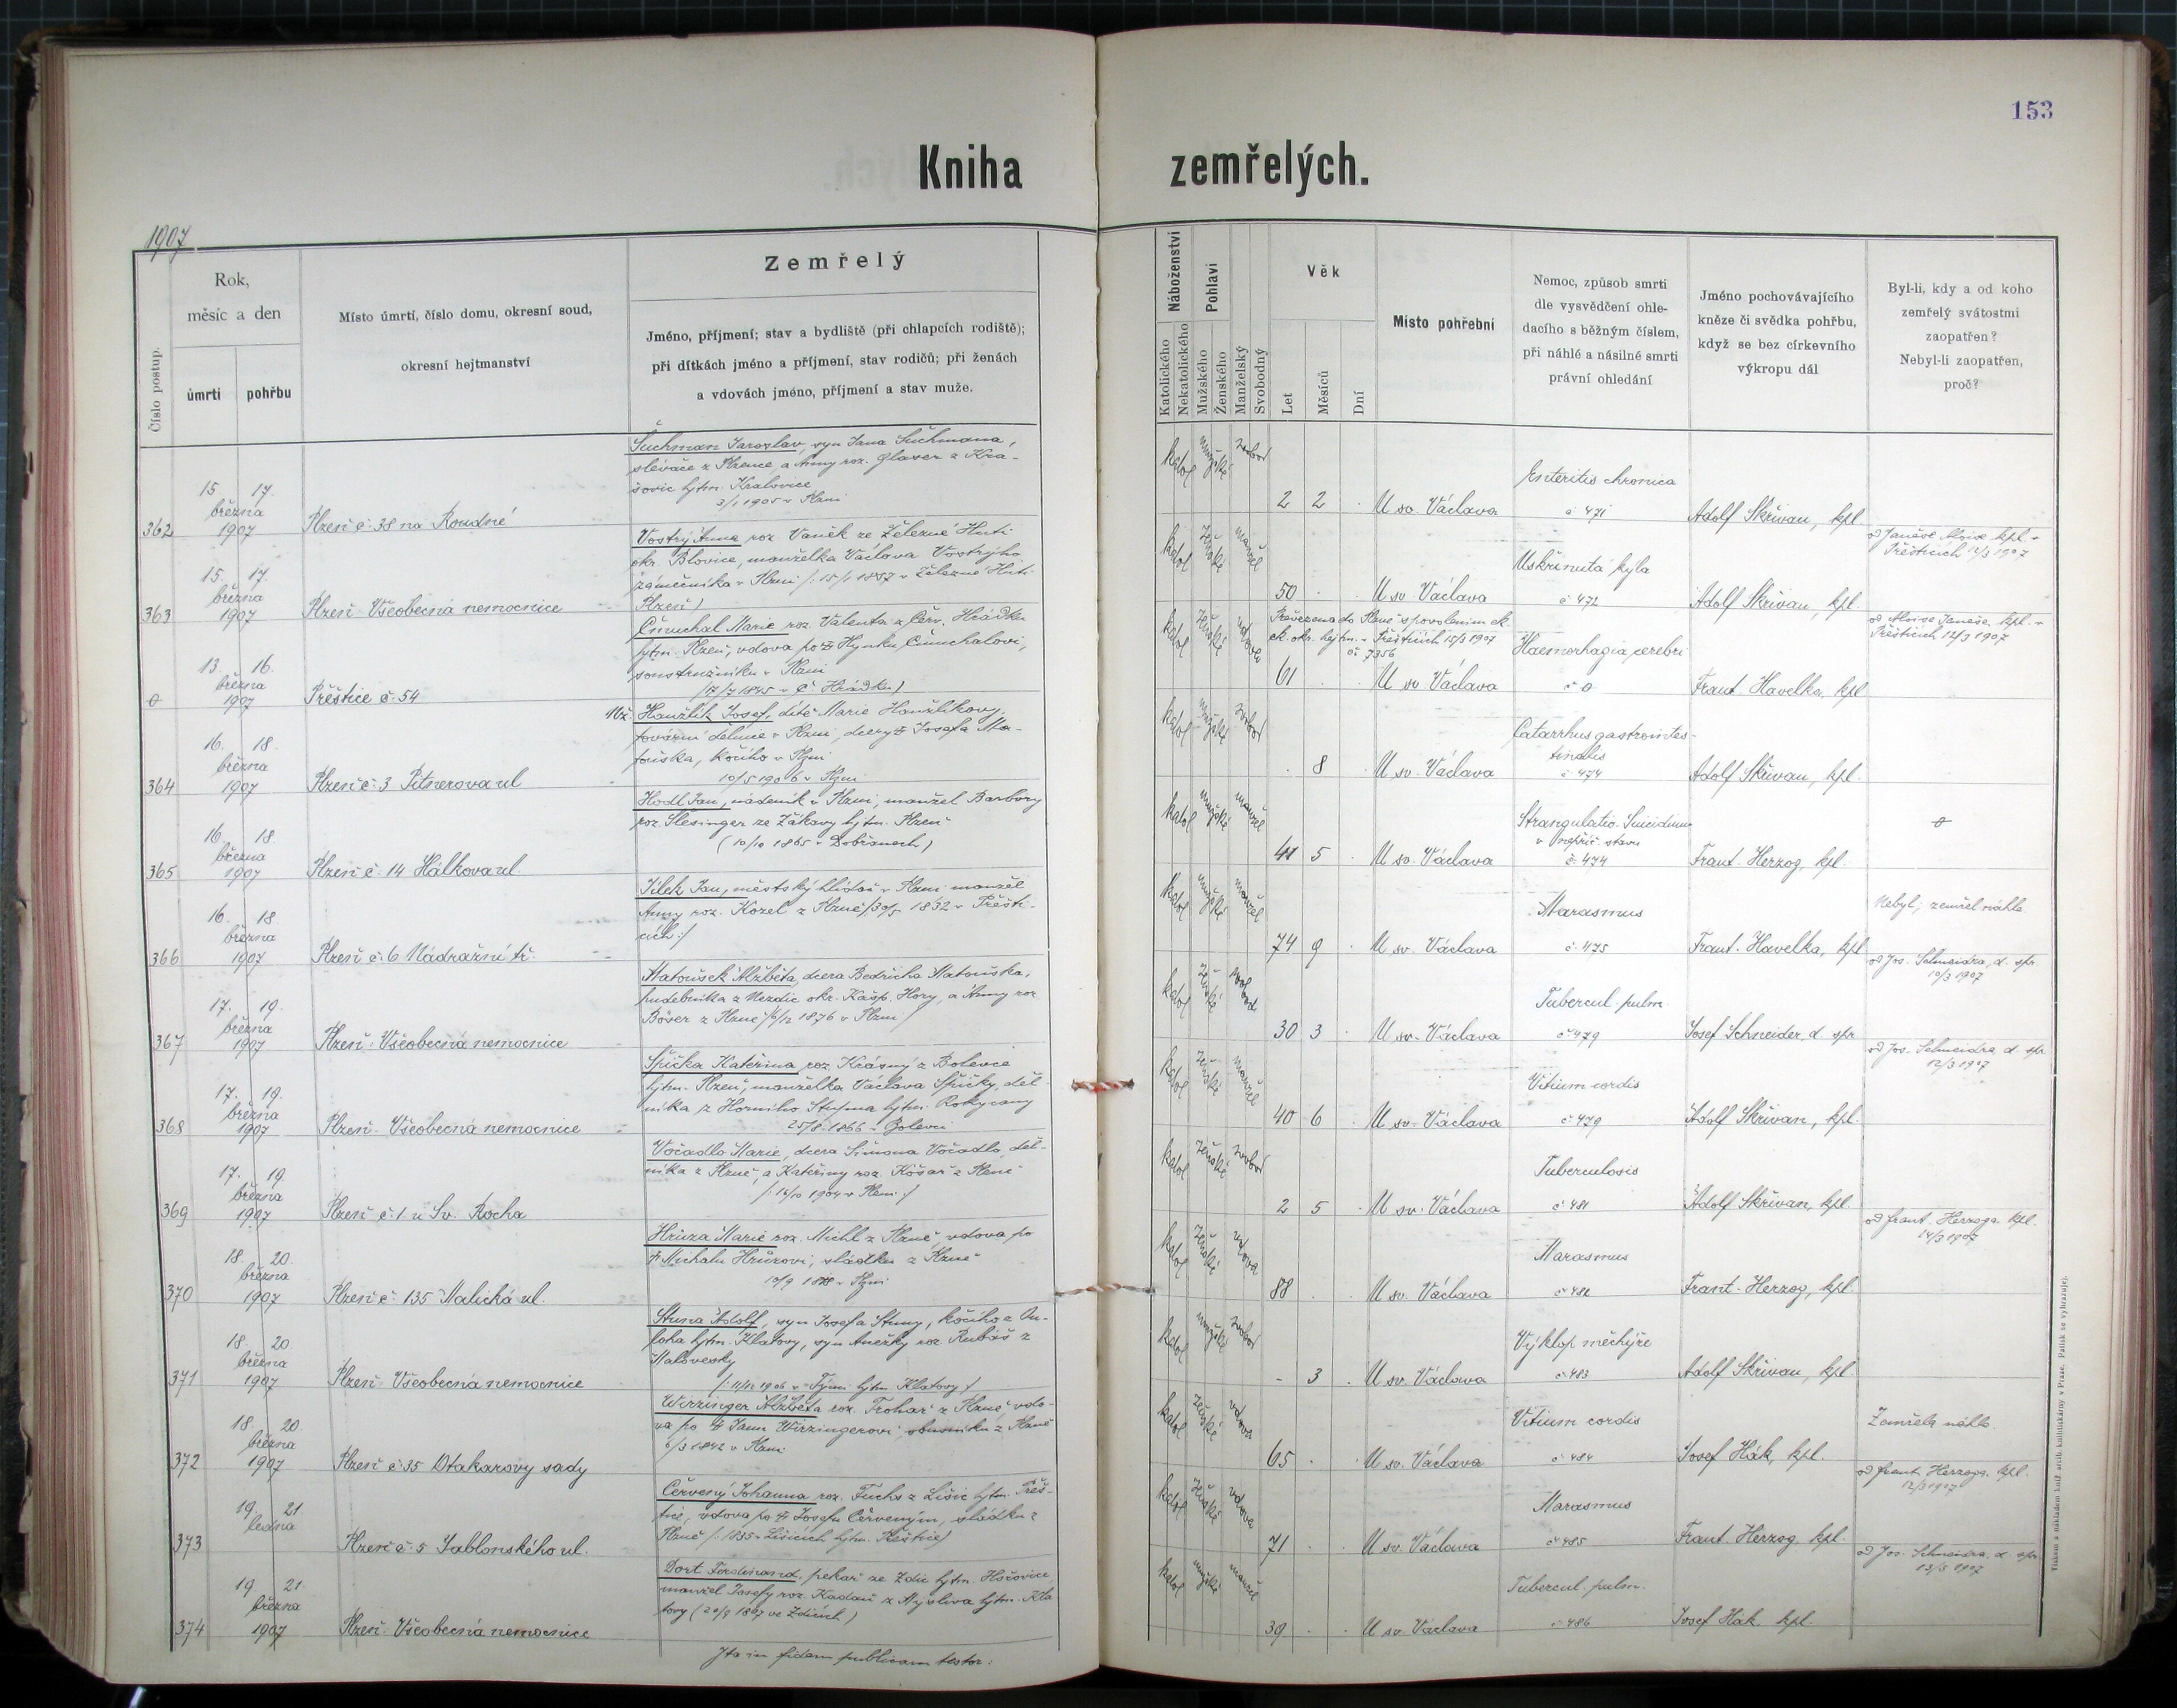 153
Kniha zemřelých.
1907
Číslo postup.
Rok,
měsíc a den
úmrtí
pohřbu
Místo úmrtí, číslo domu, okresní soud,
okresní hejtmanství
Zemřelý
Jméno, příjmení; stav a bydliště (při chlapcích rodiště);
při dítkách jméno a příjmení, stav rodičů; při ženách
a vdovách jméno, příjmení a stav muže.
Náboženství
Katolického
Nekatolického
Pohlaví
Mužského
Ženského
Manželský
Svobodný
Věk
Let
Měsíců
Dní
Místo pohřební
Nemoc, způsob smrti
dle vysvědčení ohle-
dacího s běžným číslem,
při náhlé a násilné smrti
právní ohledání
Jméno pochovávajícího
kněze či svědka pohřbu,
když se bez církevního
výkropu dál
Byl-li, kdy a od koho
zemřelý svátostmi
zaopatřen?
Nebyl-li zaopatřen,
proč?
362
15 17.
března
1907
Plzeň č. 38 na Roudné
Suchman Jaroslav, syn Jana Suchmana,
slévače z Plzence a Anny roz. Glaser z Kra-
šovic hjtm. Kralovice
3/1 1905 v Plzni
katol mužské svobod
2 2
U sv. Václava
Enteritis chronica
č 471
Adolf Skřivan, kpl
363
15. 17.
března
1907
Plzeň Všeobecná nemocnice
Vostrý Anna roz. Vaněk ze Železné Huti
okr. Blovice, manželka Václava Vostrýho
zámečníka v Plzni /: 15/1 1857 v Železné Huti
Plzeň /
katol ženské manžel
50
U sv. Václava
Uskřinutá kýla
č 472
Adolf Skřivan, kpl.
od Janéše Aloise kpl. v
Přešticích 12/3 1907
0
13. 16.
března
1907
Přeštice č. 54
Čmuchal Marie roz. Valenta z Červ. Hrádku
hjtm. Plzeň, vdova po † Hynku Čmuchalovi,
soustružníku v Plzni
(17/7 1845 v Č. Hrádku)
katol ženské vdova
Převezena do Plzně s povolením ck.
ck. okr. hejtm. v Přešticích 15/3 1907
č. 7356
61
U sv. Václava
Haemorhagia cerebri
č 0
Frant. Havelka, kpl
od Aloise Janéše, kpl. v
Přešticích 12/3 1907
364
16. 18.
března
1907
Plzeň č. 3 Pitnerova ul
Než. Hanžlík Josef, dítě Marie Hanžlíkovy,
tovární dělnice v Plzni, dcery † Josefa Ma-
touška, kočího v Plzni
10/5 1906 v Plzni
katol mužské svobod
8
U sv. Václava
Catarrhus gastrointes-
tinalis
č 474
Adolf Skřivan, kpl.
365
16. 18.
března
1907
Plzeň č. 14 Hálkova ul.
Hodl Jan, nádeník v Plzni, manžel Barbory
roz. Slesinger ze Žákavy hjtm. Plzeň
(10/10 1865 v Dobřanech)
katol mužské manžel
41 5
U sv. Václava
Strangulatio-Suicidium
v nepříč. stavu
č. 474
Frant. Herzog, kpl.
0
366
16. 18.
března
1907
Plzeň č. 6 Nádražní tř.
Jílek Jan, městský hlídač v Plzni manžel
Anny roz. Kozel z Plzně /30/5 1832 v Přešti-
cích:/
katol mužské manžel
74 9
U sv. Václava
Marasmus
č. 475
Frant. Havelka, kpl
Nebyl; zemřel náhle
367
17. 19.
března
1907
Plzeň: Všeobecná nemocnice
Matoušek Alžběta, dcera Bedřicha Matouška,
hudebníka z Nezdic okr. Kašp. Hory, a Anny roz.
Böser z Plzně /6/12 1876 v Plzni/
katol ženské svobod
30 3
U sv. Václava
Tubercul. pulm.
č 479
Josef Schneider, d. spr
od Jos. Schneidra, d. spr.
10/3 1907
368
17. 19.
března
1907
Plzeň - Všeobecná nemocnice
Špička Kateřina roz. Krásný z Bolevce
hjtm. Plzeň, manželka Václava Špičky, děl-
níka z Horního Stupna hjtm. Rokycany
25/8 1866 v Bolevci
katol ženské manžel
40 6
U sv. Václava
Vitium cordis
č 479
Adolf Skřivan, kpl.
od Jos. Schneidra, d. spr
12/3 1907
369
17. 19.
března
1907
Plzeň č. 1 u Sv. Rocha
Vočadlo Marie, dcera Šimona Vočadlo, děl-
níka z Plzně, a Kateřiny roz. Košař z Plzně
/: 14/10 1904 v Plzni:/
katol ženské svobod
2 5
U sv. Václava
Tuberculosis
č 481
Adolf Skřivan, kpl.
370
18. 20.
března
1907
Plzeň č. 135 Malická ul.
Hrůza Marie roz. Michl z Plzně, vdova po
† Michalu Hrůzovi, sládku z Plzně
10/9 1818 v Plzni
katol ženské vdova
88
U sv. Václava
Marasmus
č 482
Frant. Herzog, kpl.
od Frant. Herzoga kpl.
14/3 1907
371
18. 20.
března
1907
Plzeň Všeobecná nemocnice
Stuna Adolf, syn Josefa Stuny, kočího z Ou-
loha hjtm. Klatovy, syn Anežky roz. Rubáš z
Malovesky
/: 11/12 1906 v Týnci hjtm. Klatovy /
katol mužské svobod
3
U sv. Václava
Výklop měchýře
č 483
Adolf Skřivan, kpl.
372
18. 20.
března
1907
Plzeň č. 35 Otakarovy sady
Wirzinger Alžběta roz. Trohař z Plzně vdo-
va po † Janu Wirzingerovi, obuvníku z Plzně
6/3 1842 v Plzni
katol ženské vdova
65
U sv. Václava
Vitium cordis
č 484
Josef Hák, kpl.
Zemřela náhle.
373
19. 21
ledna
Plzeň č. 5 Jablonského ul.
Červený Johanna roz. Fuchs z Lišic hjtm. Přeš-
tice, vdova po † Josefu Červeným, sládku z
Plzně /: 1835 v Lišicích hjtm. Přeštice)
katol ženské vdova
71
U sv. Václava
Marasmus
č 485
Frant. Herzog, kpl.
od Frant. Herzoga, kpl.
12/3 1907
374
19 21.
března
1907
Plzeň: Všeobecná nemocnice
Dort Ferdinand, pekař ze Zdic hjtm. Hořovice,
manžel Josefy roz. Kadaní z Myslíva hjtm. Kla
tovy (20/9 1867 ve Zdicích)
katol mužské manžel
39
U sv. Václava
Tubercul. pulm.
č 486
Josef Hák, kpl.
od Jos. Schneidra, d. spr.
13/3 1907
Ita in fidem publicam testor: